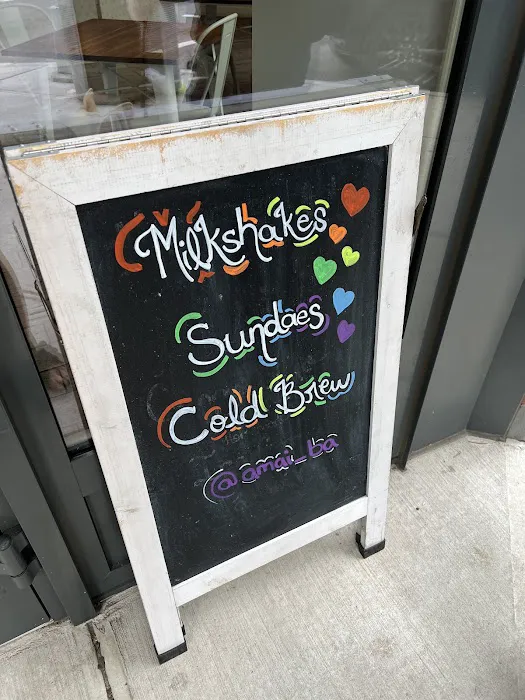 Milkshakes
Sundaes
Cold Brew
@amai_ba